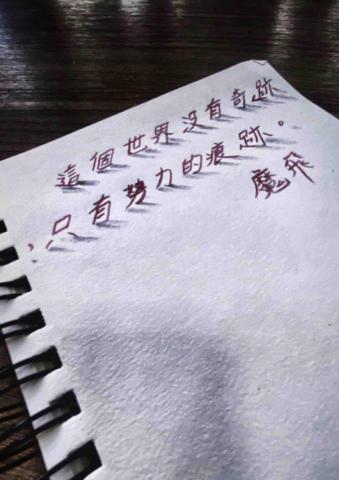 這個世界沒有奇跡
只有努力的痕跡。
魔飛